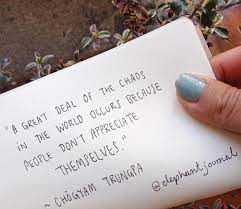 "A GREAT DEAL OF THE CHAOS
IN THE WORLD OCCURS BECAUSE
PEOPLE DON'T APPRECIATE
THEMSELVES."
~ CHÖGYAM TRUNGPA
@elephantjournal